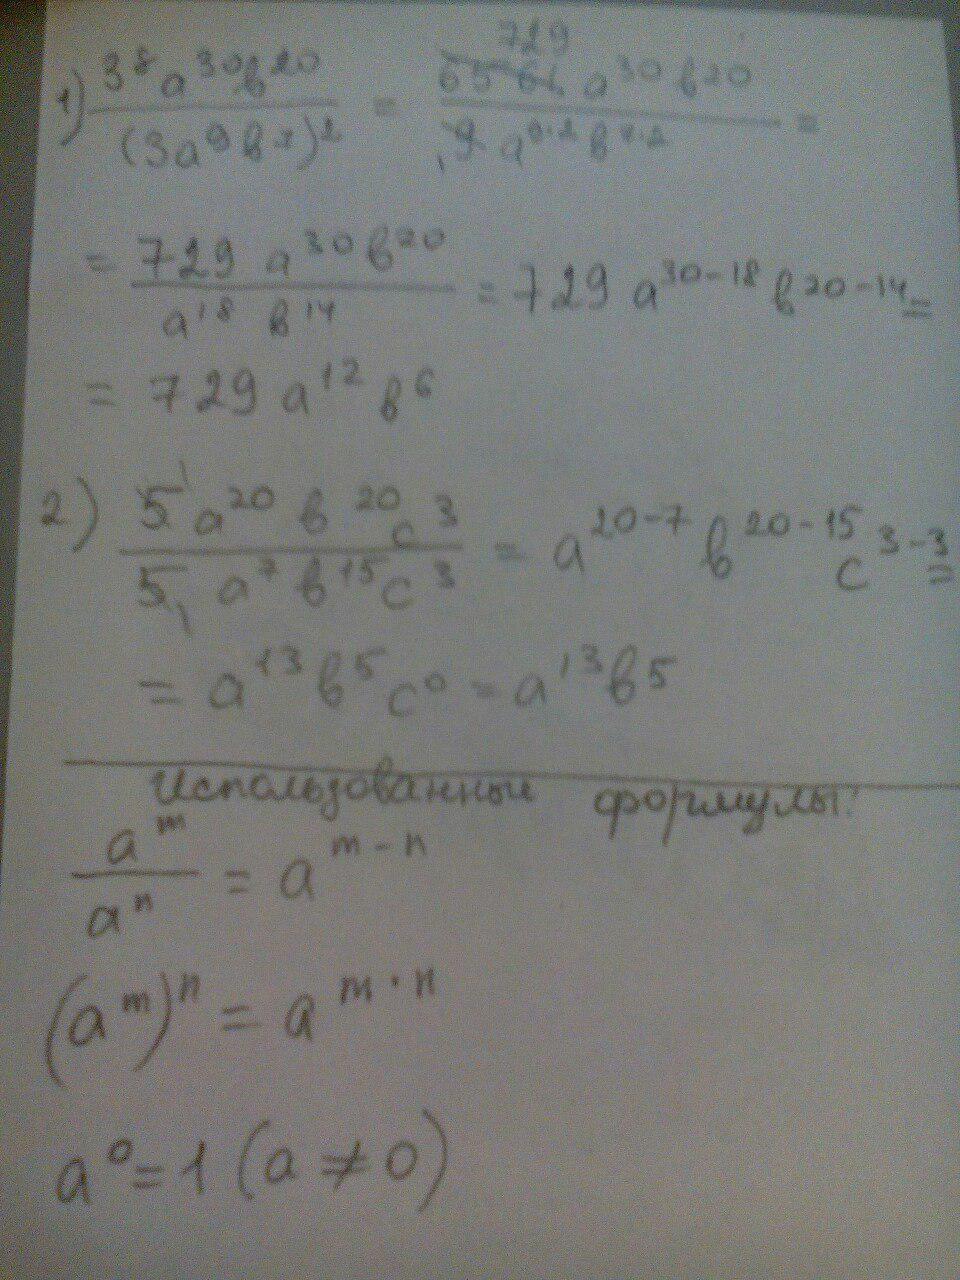 1) 3⁸a³⁰в²⁰ / (3a⁹в⁷)² = 729 6561 a³⁰в²⁰ / 1 9 a⁹·²в⁷·² =
= 729 a³⁰в²⁰ / a¹⁸ в¹⁴ = 729 a³⁰⁻¹⁸ в²⁰⁻¹⁴ =
= 729 a¹² в⁶
2) 5 1 a²⁰ в²⁰ c³ / 5 1 a⁷ в¹⁵ c³ = a²⁰⁻⁷ в²⁰⁻¹⁵ c³⁻³ =
= a¹³ в⁵ c⁰ = a¹³в⁵
Использованные формулы:
aᵐ / aⁿ = aᵐ⁻ⁿ
(aᵐ)ⁿ = aᵐ·ⁿ
a⁰ = 1 (a ≠ 0)